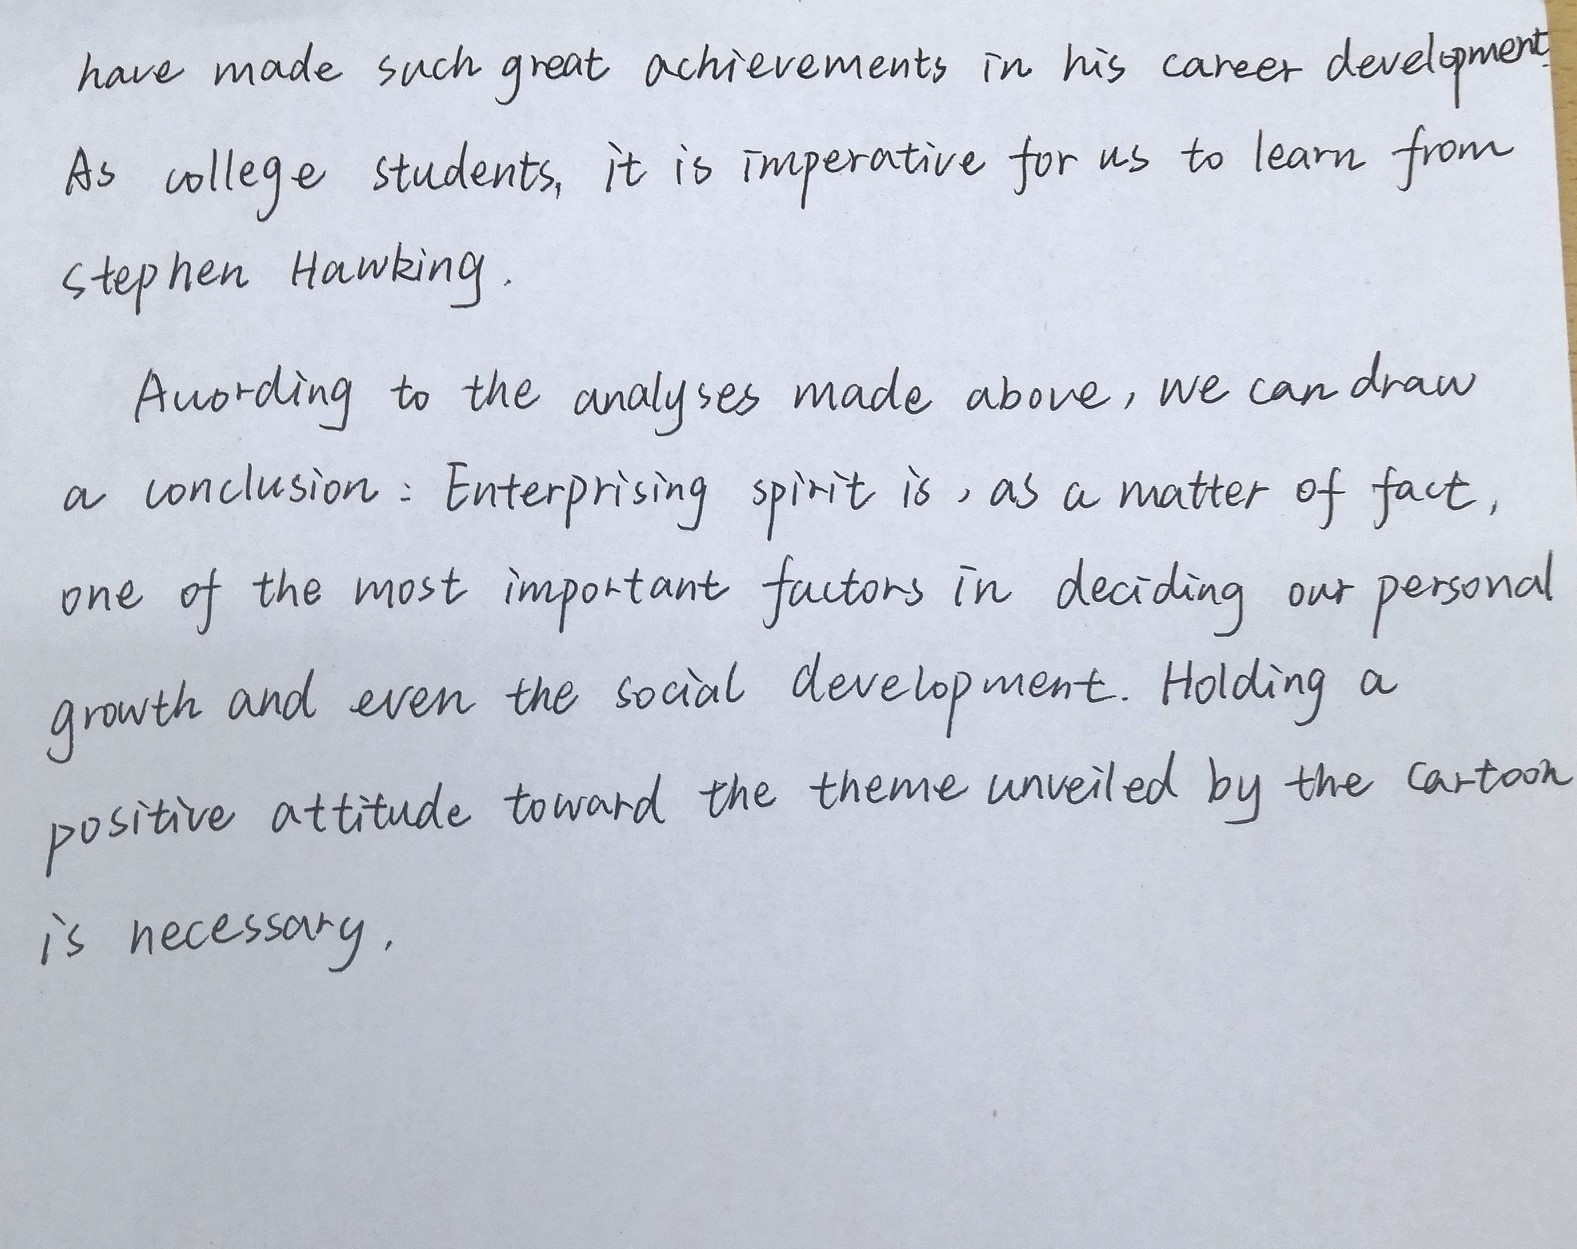 have made such great achievements in his career development.
As college students, it is imperative for us to learn from
Stephen Hawking.
According to the analyses made above, we can draw
a conclusion: Enterprising spirit is, as a matter of fact,
one of the most important factors in deciding our personal
growth and even the social development. Holding a
positive attitude toward the theme unveiled by the cartoon
is necessary.